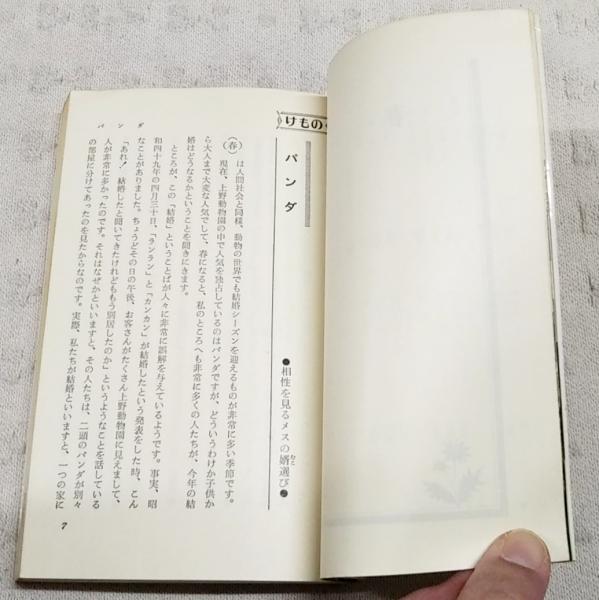 けもの
パンダ
●相性を見るメスの婿選び●
むこ
(春)は人間社会と同様、動物の世界でも結婚シーズンを迎えるものが非常に多い季節です。
現在、上野動物園の中で人気を独占しているのはパンダですが、どういうわけか子供か
ら大人まで大変な人気でして、春になると、私のところへも非常に多くの人たちが、今年の結
婚はどうなるかということを聞きにきます。
ところが、この「結婚」ということばが人々に非常に誤解を与えているようです。事実、昭
和四十九年の四月三十日、「ランラン」と「カンカン」が結婚したという発表をした時、こん
なことがありました。ちょうどその日の午後、お客さんがたくさん上野動物園に見えまして、
「あれ！ 結婚したと聞いてきたけれどももう別居したのか」というようなことを話している
人が非常に多かったのです。それはなぜかといいますと、その人たちは、二頭のパンダが別々
の部屋に分けてあったのを見たからなのです。実際、私たちが結婚といいますと、一つの家に
パンダ
7